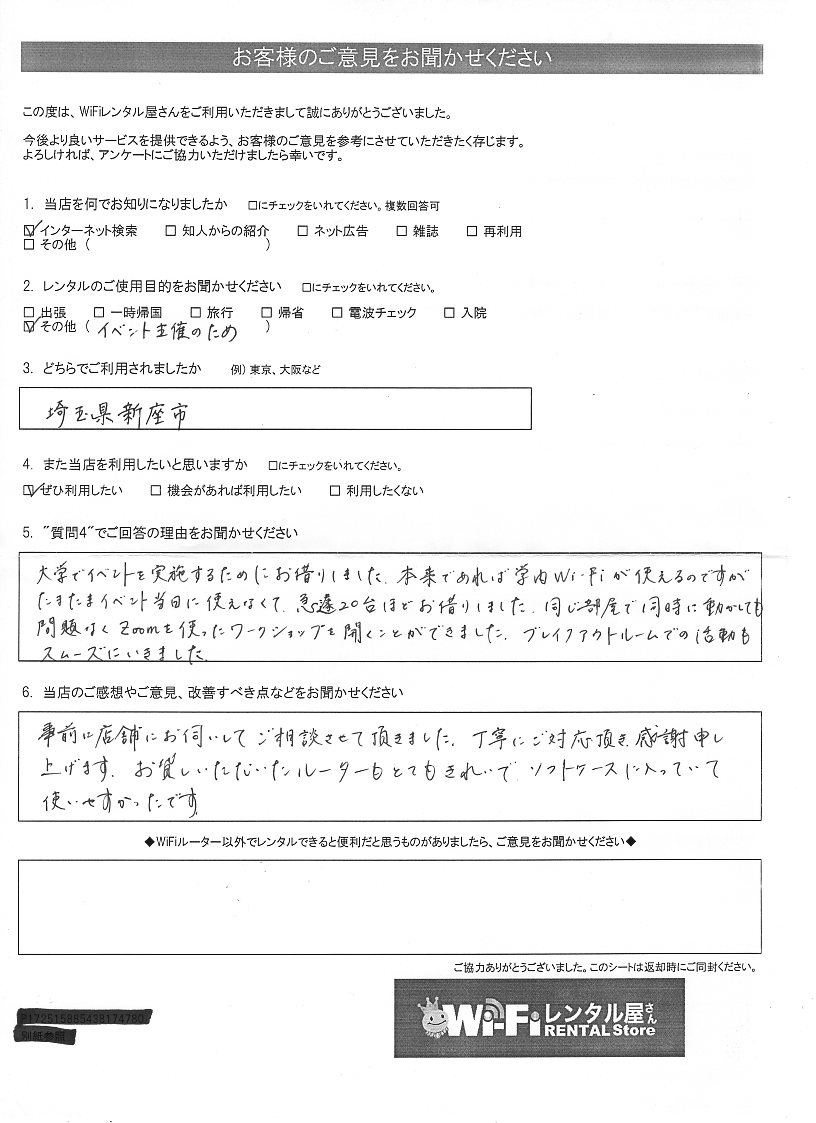 お客様のご意見をお聞かせください
この度は、WiFiレンタル屋さんをご利用いただきまして誠にありがとうございました。
今後より良いサービスを提供できるよう、お客様のご意見を参考にさせていただきたく存じます。
よろしければ、アンケートにご協力いただけましたら幸いです。
1. 当店を何でお知りになりましたか □にチェックをいれてください。複数回答可
☑インターネット検索 □ 知人からの紹介 □ ネット広告 □ 雑誌 □ 再利用
□ その他 ( )
2. レンタルのご使用目的をお聞かせください □にチェックをいれてください。
□ 出張 □ 一時帰国 □ 旅行 □ 帰省 □ 電波チェック □ 入院
☑その他 ( イベント主催のため )
3. どちらでご利用されましたか 例) 東京、大阪など
埼玉県新座市
4. また当店を利用したいと思いますか □にチェックをいれてください。
☑ぜひ利用したい □ 機会があれば利用したい □ 利用したくない
5. "質問4"でご回答の理由をお聞かせください
大学でイベントを実施するためにお借りしました。本来であれば学内Wi-Fiが使えるのですが
たまたまイベント当日に使えなくて、急遽20台ほどお借りしました。同じ部屋で同時に動かしても
問題なくZoomを使ったワークショップを開くことができました。ブレイクアウトルームでの活動も
スムーズにいきました。
6. 当店のご感想やご意見、改善すべき点などをお聞かせください
事前に店舗にお伺いしてご相談させて頂きました。丁寧にご対応頂き、感謝申し
上げます。お貸しいただいたルーターもとてもきれいで、ソフトケースに入っていて
使いやすかったです。
◆WiFiルーター以外でレンタルできると便利だと思うものがありましたら、ご意見をお聞かせください◆
ご協力ありがとうございました。このシートは返却時にご同封ください。
別紙参照
Wi-Fiレンタル屋さん
RENTAL Store